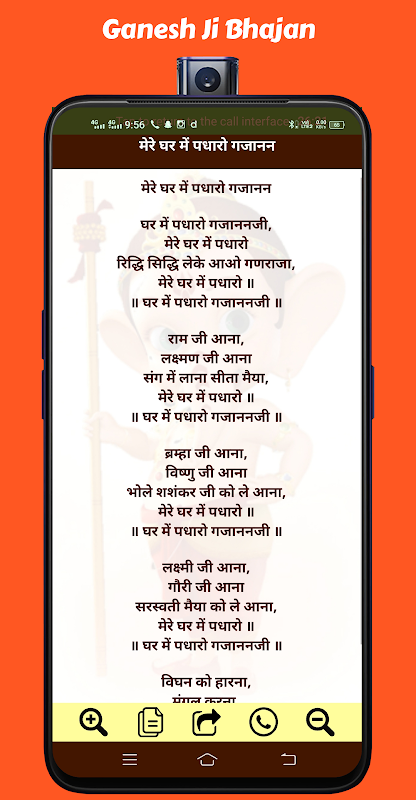 Ganesh Ji Bhajan
4G 4G 9:56 d
the call interface
मेरे घर में पधारो गजानन
मेरे घर में पधारो गजानन
घर में पधारो गजाननजी,
मेरे घर में पधारो
रिद्धि सिद्धि लेके आओ गणराजा,
मेरे घर में पधारो ॥
॥ घर में पधारो गजाननजी ॥
राम जी आना,
लक्ष्मण जी आना
संग में लाना सीता मैया,
मेरे घर में पधारो ॥
॥ घर में पधारो गजाननजी ॥
ब्रम्हा जी आना,
विष्णु जी आना
भोले शशंकर जी को ले आना,
मेरे घर में पधारो ॥
॥ घर में पधारो गजाननजी ॥
लक्ष्मी जी आना,
गौरी जी आना
सरस्वती मैया को ले आना,
मेरे घर में पधारो ॥
॥ घर में पधारो गजाननजी ॥
विघन को हारना,
मंगल करना